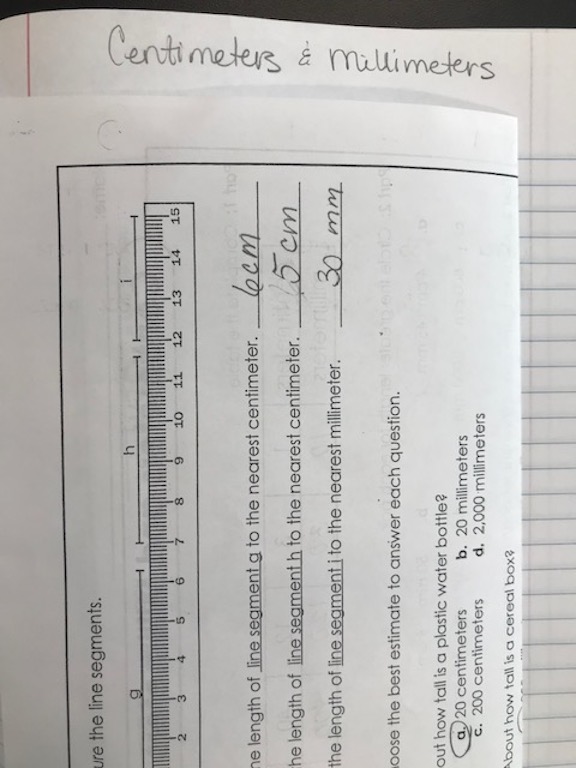 Centimeters & Millimeters
ure the line segments.
g h i
2 3 4 5 6 7 8 9 10 11 12 13 14 15
length of line segment g to the nearest centimeter. 6cm
he length of line segment h to the nearest centimeter. 5 cm
the length of line segment i to the nearest millimeter. 30 mm
oose the best estimate to answer each question.
out how tall is a plastic water bottle?
a. 20 centimeters b. 20 millimeters
c. 200 centimeters d. 2,000 millimeters
About how tall is a cereal box?